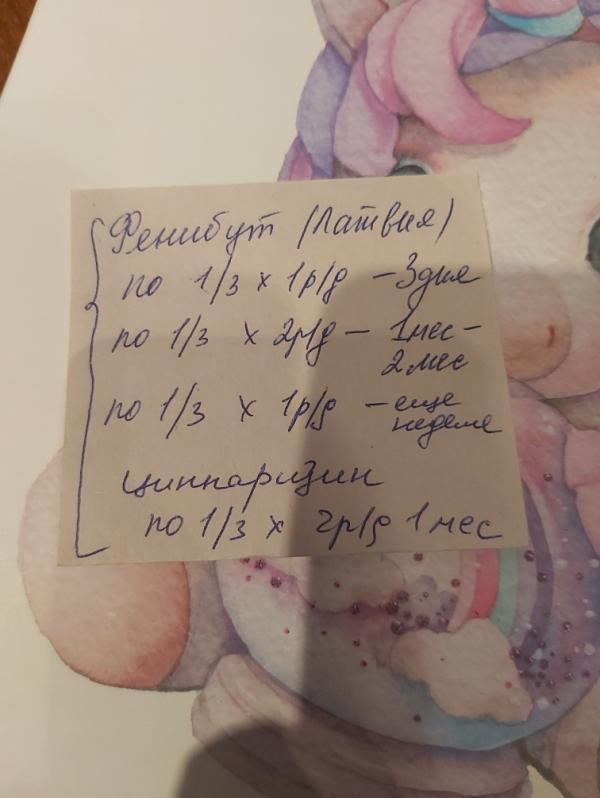 Фенибут (Латвия)
по 1/3 х 1р/д – 3 дня
по 1/3 х 2р/д – 1 мес –
2 мес
по 1/3 х 1р/д – еще
неделя
циннаризин
по 1/3 х 2р/д 1 мес